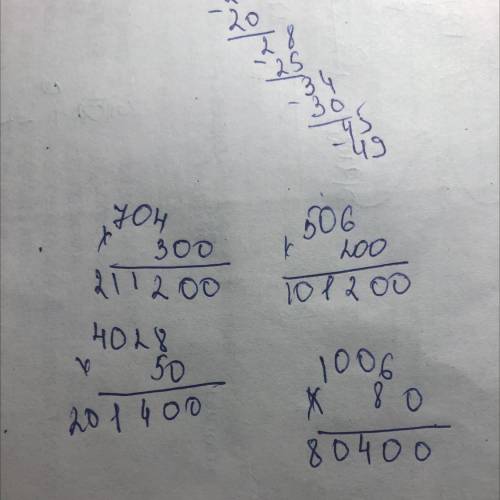 - 20
28
- 25
34
- 30
45
- 49
704
x 300
211200
506
x 200
101200
4028
x 50
201400
1006
x 80
80400